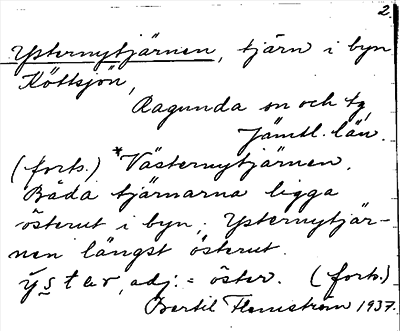 2.
Ysternytjärnen, tjärn i byn
Köttsjön,
Ragunda sn och tg,
Jämtl. län.
(forts.) *Västernytjärnen.
Båda tjärnarna ligga
österut i byn; Ysternytjär-
nen längst österut.
ýster, adj. = öster. (forts.)
Bertil Flemström 1937.